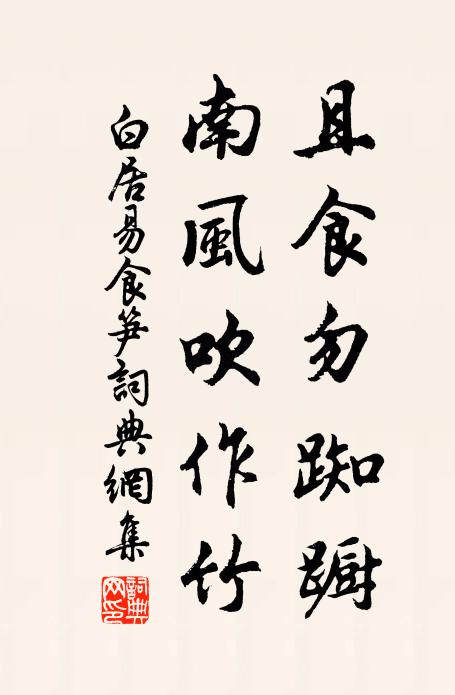 且食勿踟躕
南風吹作竹
白居易食笋詞典網集
詞典網印